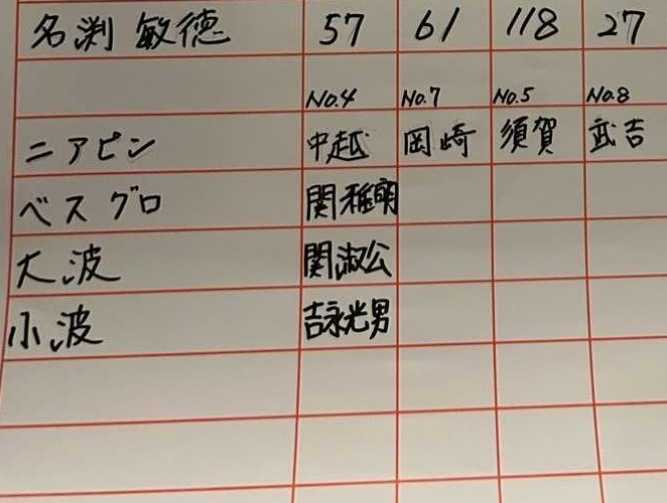 名渕 敏徳 57 61 118 27
No.4 No.7 No.5 No.8
ニアピン 中越 岡崎 須賀 武吉
ベスグロ 関雅明
大波 関淑公
小波 吉永光男